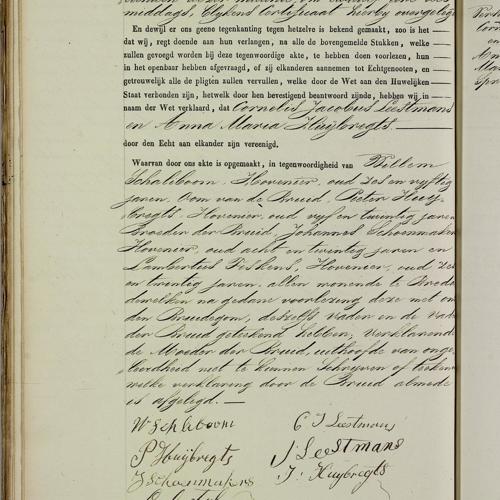 middags, blijkens certificaat hierbij overgelegd
En dewijl er ons geene tegenkanting tegen hetzelve is bekend gemaakt, zoo is het
dat wij, regt doende aan hun verlangen, na alle de bovengemelde Stukken, welke
zullen gevoegd worden bij deze tegenwoordige akte, te hebben doen voorlezen, hun
in het openbaar hebben afgevraagd, of zij elkanderen aannemen tot Echtgenooten, en
getrouwelijk alle de pligten zullen vervullen, welke door de Wet aan den Huwelijken
Staat verbonden zijn, hetwelk door hen bevestigend beantwoord zijnde, hebben wij in
naam der Wet verklaard, dat Cornelis Jacobus Leestmans
en Anna Maria Huijbregts
door den Echt aan elkander zijn vereenigd.
Waarvan door ons akte is opgemaakt, in tegenwoordigheid van Willem
Schaliboom, Hovenier, oud zes en vijftig
jaren, Oom van de Bruid, Pieter Huij-
bregts Hovenier, oud vijf en twintig jaren
Broeder der Bruid, Johannes Schoenmakers
Hovenier, oud acht en twintig jaren en
Lambertus Teskens, Hovenier, oud zes
en twintig jaren, allen wonende te Breda
dewelken na gedane voorlezing deze met ons
den Bruidegom, deszelfs vader en de vader
der Bruid geteekend hebben, verklarende
de Moeder der Bruid, uithoofde van onge-
leerdheid niet te kunnen Schrijven of teekenen
welke verklaring door de Bruid almede
is afgelegd.
W Schliboom C J Leestmans
P Huijbregts J: Leestmans
J Schoenmakers J: Huijbregts